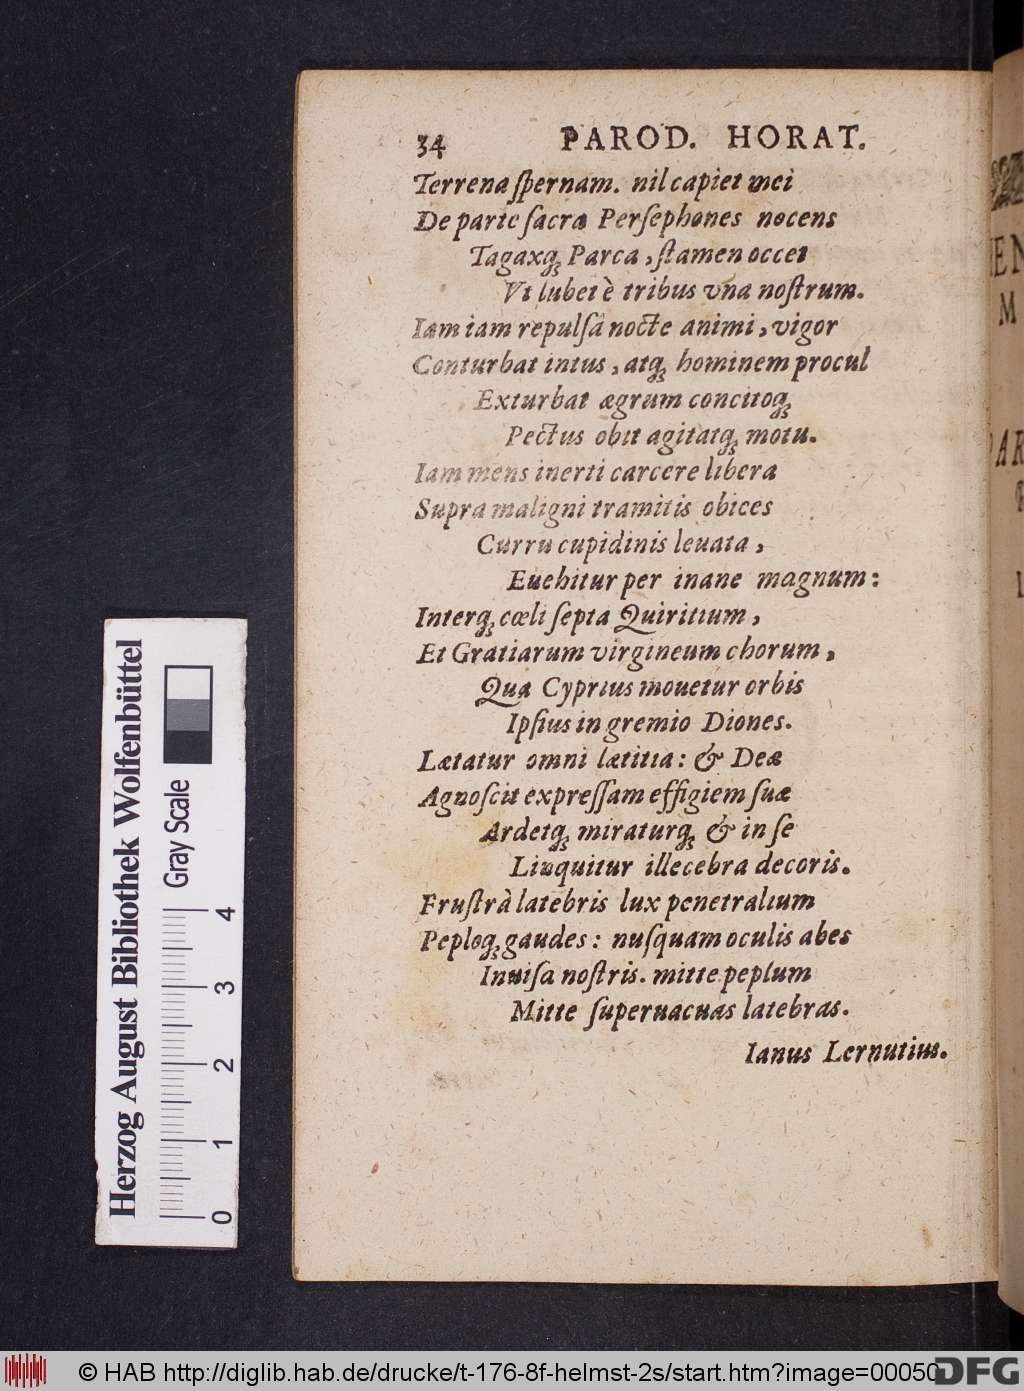 34 PAROD. HORAT.
Terrena ſpernam. nil capiet mei
De parte ſacra Perſephones nocens
Tagaxq; Parca, ſtamen occet
Vt lubet è tribus vna noſtrum.
Iam iam repulſa nocte animi, vigor
Conturbat intus, atq; hominem procul
Exturbat ægrum concitoq;
Pectus obit agitatq; motu.
Iam mens inerti carcere libera
Supra maligni tramitis obices
Curru cupidinis leuata,
Euehitur per inane magnum:
Interq; cœli ſepta Quiritium,
Et Gratiarum virgineum chorum,
Qua Cyprius mouetur orbis
Ipſius in gremio Diones.
Lætatur omni lætitia: & Deæ
Agnoſcit expreſſam effigiem ſuæ
Ardetq; miraturq; & in ſe
Linquitur illecebra decoris.
Fruſtrà latebris lux penetralium
Peploq; gaudes: nuſquam oculis abes
Inuiſa noſtris. mitte peplum
Mitte ſuperuacuas latebras.
Ianus Lernutius.
Herzog August Bibliothek Wolfenbüttel
Gray Scale
0 1 2 3 4
© HAB http://diglib.hab.de/drucke/t-176-8f-helmst-2s/start.htm?image=00050
DFG